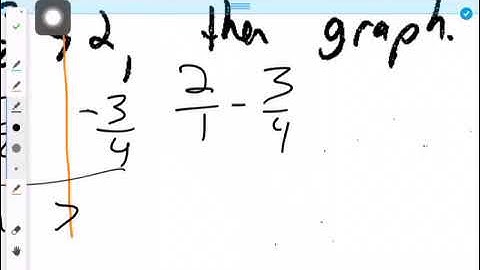 2 then graph.
-3/4 2/1 - 3/4
>